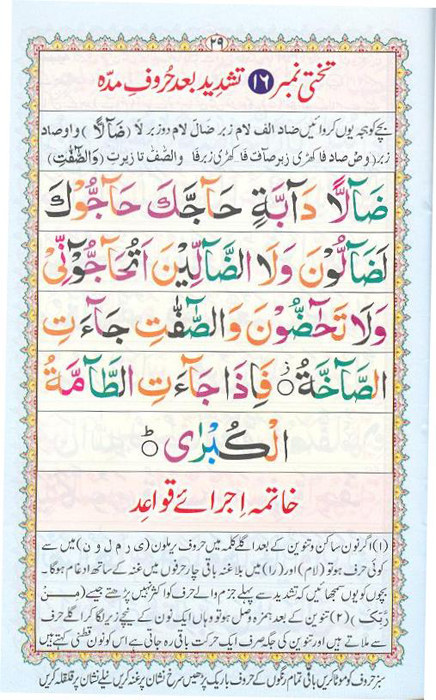 ٢٩
تختی نمبر ١٦ تشدید بعد حُروفِ مدّہ
بچے کو ہجہ یوں کروائیں ضاد الف لام زبر ضَالّ لام دو زبر لًا (ضَآلًّا) واؤ صاد
زبر (وَصْ صاد فا کھڑی زبر صٰٓافّ فا کھڑی زبر فا وَالصّٰٓفّٰ تا زیرتِ (وَالصّٰٓفّٰتِ)
ضَآلًّا دَآبَّةٍ حَآجَّكَ حَآجُّوْكَ
لَضَآلُّوْنَ وَلَا الضَّآلِّيْنَ اَتُحَآجُّوْٓنِّىْ
وَلَا تَحٰٓضُّوْنَ وَالصّٰٓفّٰتِ جَآءَتِ
الصَّآخَّةُ ○ فَاِذَا جَآءَتِ الطَّآمَّةُ
الْكُبْرٰى ○ ط
خاتمہ اِجرائے قواعد
(١) اگر نون ساکن و تنوین کے بعد اگلے کلمہ میں حروف یرملون (ی ر م ل و ن) میں سے
کوئی حرف ہو تو (لام) اور (را) میں بلا غنہ باقی چار حرفوں میں غنہ کے ساتھ ادغام ہوگا۔
بچوں کو یوں سمجھائیں کہ تشدید سے پہلے جزم والے حرف کو اکثر نہیں پڑھتے جیسے (مِنْ
رَّبِّكَ) (٢) تنوین کے بعد ہمزہ وصل ہو تو وہاں ایک نون کے نیچے زیر لگا کر اگلے حرف
سے ملاتے ہیں اور تنوین کی جگہ صرف ایک حرکت باقی رہ جاتی ہے اس کو نون قطنی کہتے ہیں
سبز حروف کو موٹا کریں باقی تمام رنگوں کے حروف باریک پڑھیں سرخ نشان پر غنہ کریں نیلے نشان پر قلقلہ کریں